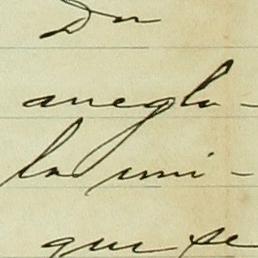 Du
aneglo-
la uni-
que se